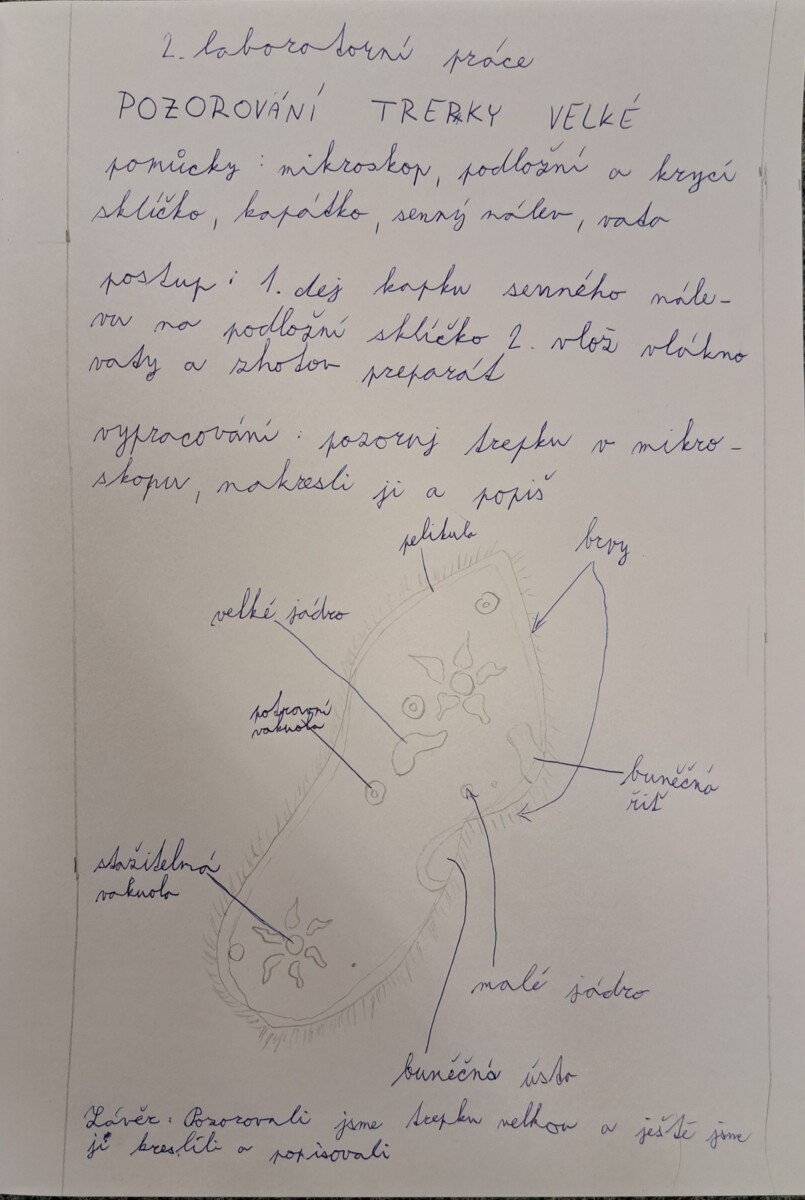 2. laboratorní práce
POZOROVÁNÍ TREPKY VELKÉ
pomůcky : mikroskop, podložní a krycí
sklíčko, kapátko, senný nálev, vata
postup : 1. dej kapku senného nále-
vu na podložní sklíčko 2. vlož vlákno
vaty a zhotov preparát
vypracování : pozoruj trepku v mikro-
skopu, nakresli ji a popiš
pelikula
brvy
velké jádro
potravní
vakuola
buněčná
řiť
stažitelná
vakuola
malé jádro
buněčná ústa
Závěr : Pozorovali jsme trepku velkou a ještě jsme
ji kreslili a popisovali